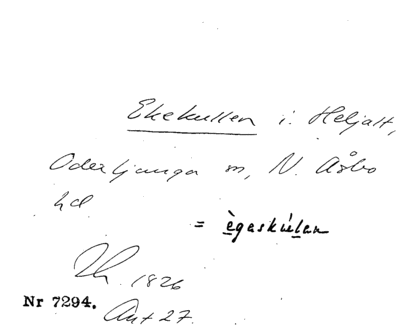 Ekekullen i. Heljalt,
Oderljunga sn, N. Åsbo
hd.
= ègaskúlan
Th. 1826
Nr 7294. Ant 27.